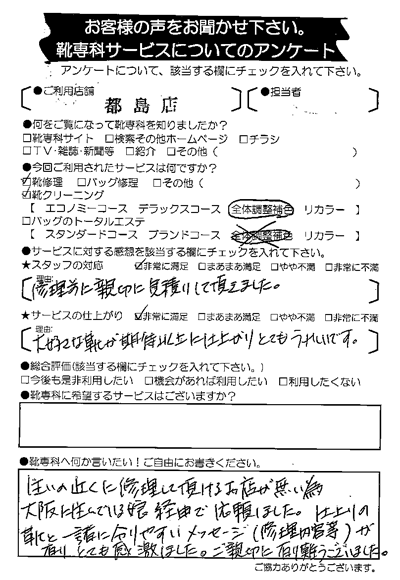 お客様の声をお聞かせ下さい。
靴専科サービスについてのアンケート
アンケートについて、該当する欄にチェックを入れて下さい。
●ご利用店舗
都島店
●担当者
●何をご覧になって靴専科を知りましたか?
□靴専科サイト □検索その他ホームページ □チラシ
□TV・雑誌・新聞等 □紹介 □その他( )
●今回ご利用されたサービスは何ですか?
☑靴修理 □バッグ修理 □その他( )
☑靴クリーニング
【 エコノミーコース デラックスコース 全体調整補色 リカラー 】
□バッグのトータルエステ
【 スタンダードコース ブランドコース 全体調整補色 リカラー 】
●サービスに対する感想を該当する欄にチェックを入れて下さい。
★スタッフの対応 ☑非常に満足 □まあまあ満足 □やや不満 □非常に不満
理由:
修理前に親切に見積りして頂きました。
★サービスの仕上がり ☑非常に満足 □まあまあ満足 □やや不満 □非常に不満
理由:
大好きな靴が期待以上に仕上がりとてもうれしいです。
●総合評価(該当する欄にチェックを入れて下さい。)
□今後も是非利用したい □機会があれば利用したい □利用したくない
●靴専科に希望するサービスはございますか?
●靴専科へ何か言いたい!ご自由にお書きください。
住いの近くに修理して頂けるお店が無い為
大阪に住んでいる娘経由で依頼しました。仕上りの
靴と一諸に分りやすいメッセージ(修理内容等)が
有りとても感激しました。ご親切に有り難うございました。
ご協力ありがとうございます。